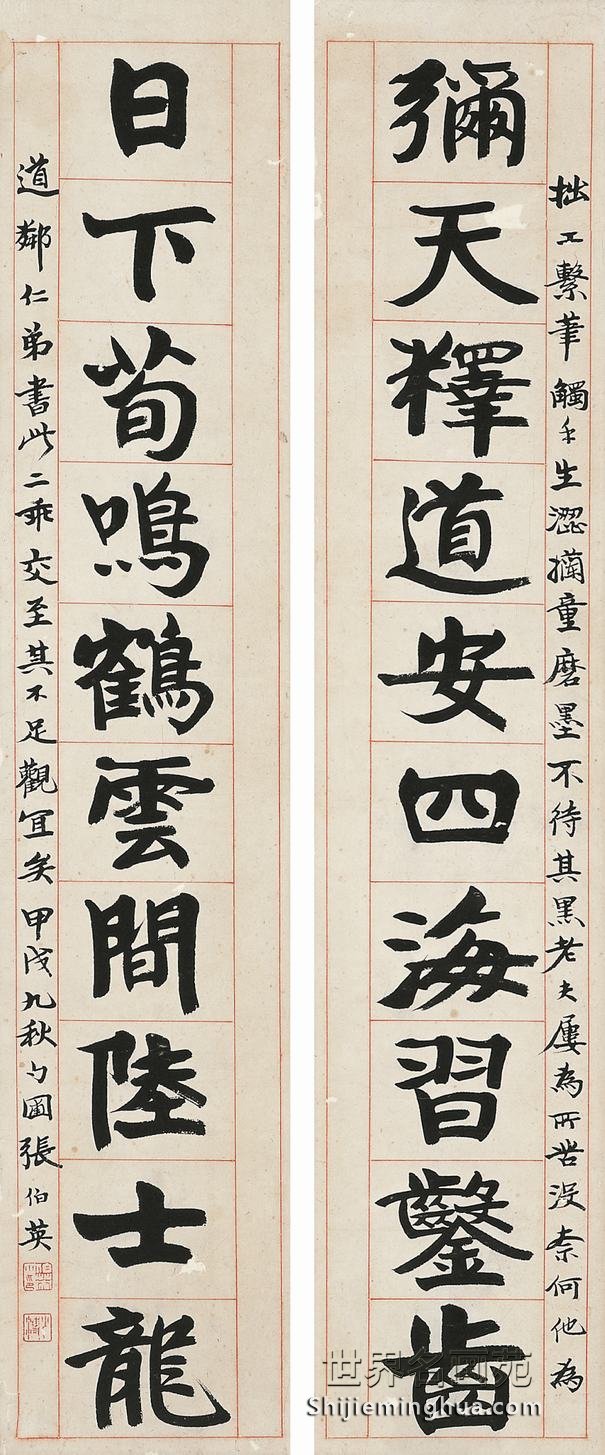 彌天釋道安四海習鑿齒
日下荀鳴鶴雲間陸士龍
拙工繫筆觸手生澀擕童磨墨不待其黑老夫屢為所苦沒柰何他為
道鄰仁弟書此二乖交至其不足觀宜矣甲戌九秋勺圃張伯英
世界名画苑
Shijieminghua.com